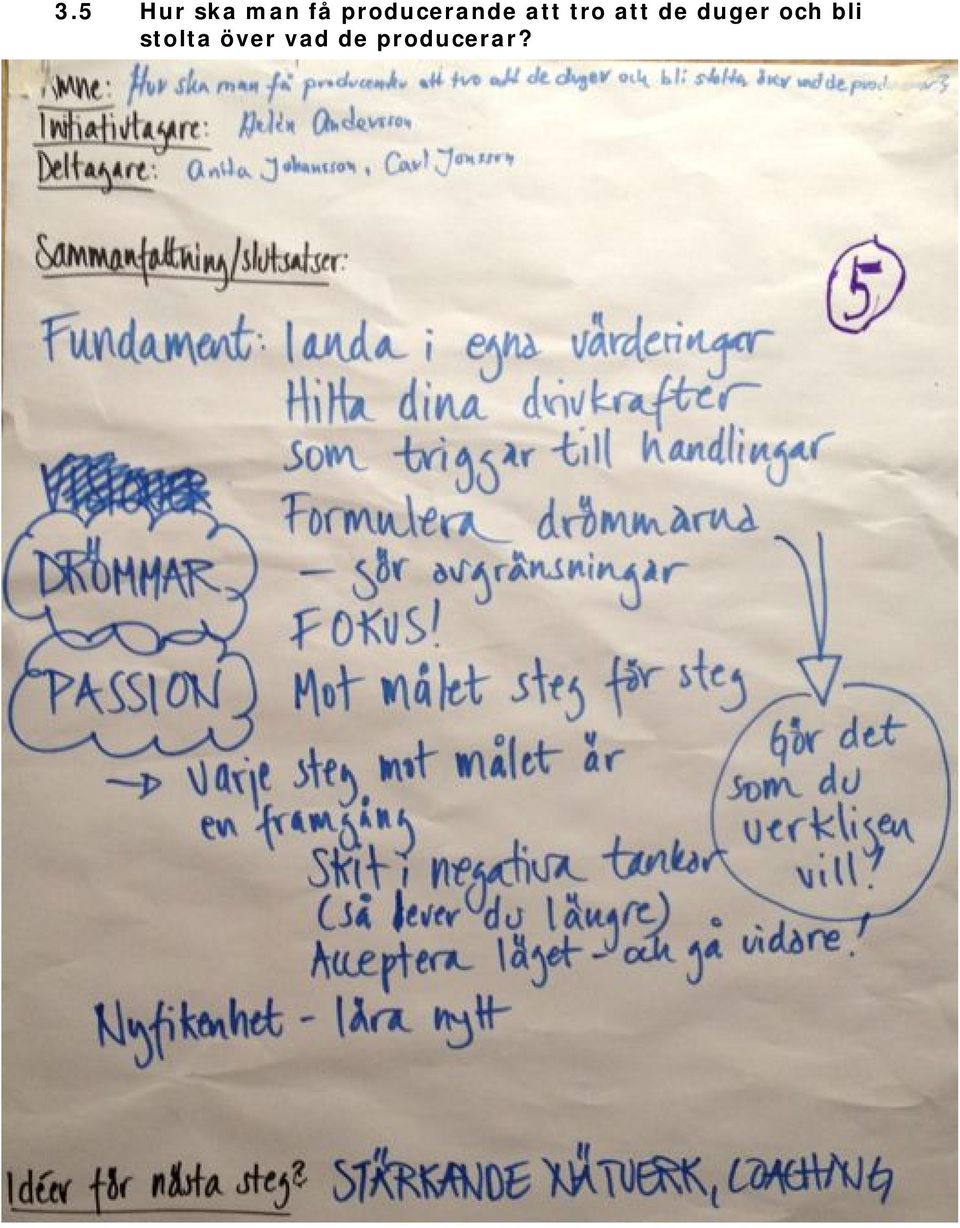 3.5 Hur ska man få producerande att tro att de duger och bli
stolta över vad de producerar?
Ämne: Hur ska man få producenter att tro att de duger och bli stolta över vad de producerar?
Initiativtagare: Helén Andersson
Deltagare: Anita Johansson, Carl Jonsson
Sammanfattning/slutsatser:
5
Fundament: landa i egna värderingar
Hitta dina drivkrafter
som triggar till handlingar
Formulera drömmarna
DRÖMMAR
- gör avgränsningar
FOKUS!
PASSION
Mot målet steg för steg
→ Varje steg mot målet är
en framgång
Gör det
som du
verkligen
vill!
Skit i negativa tankar
(så lever du längre)
Acceptera läget - och gå vidare!
Nyfikenhet - lära nytt
Idéer för nästa steg? STÄRKANDE NÄTVERK, COACHNING